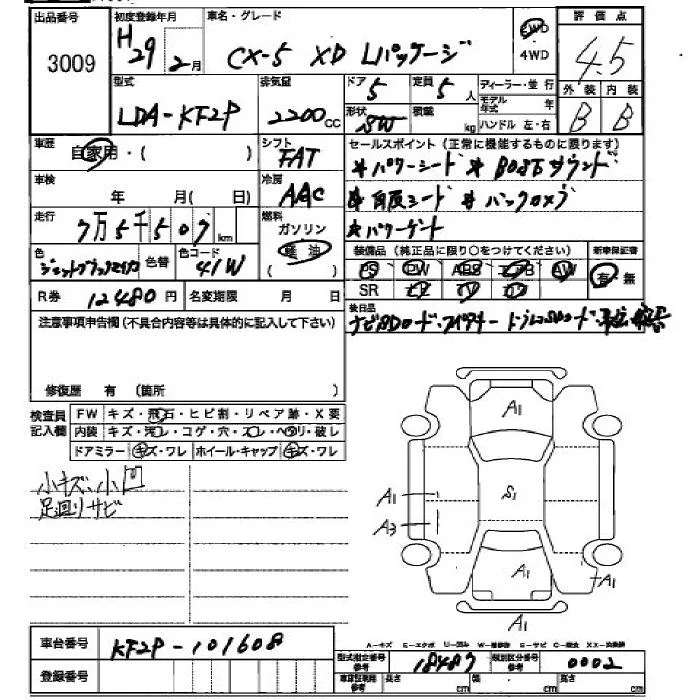 出品番号 初度登録年月 車名・グレード 評価点
3009 H29 2月 CX-5 XD Lパッケージ FWD 4WD 4.5
型式 排気量 ドア 5 定員 5人 ディーラー・並行 外装 内装
LDA-KF2P 2200cc 形状 SW 積載 kg モデル年式 年 ハンドル 左・右 B B
車歴 自家用・( ) シフト FAT セールスポイント(正常に機能するものに限ります)
車検 年 月(日) 冷房 AAC *パワーシート *BOSEサウンド
*角反シート *バックカメラ
走行 7万5千507km 燃料 ガソリン 軽油 ( ) *パワーゲート
色 ジェットブラックマイカ 色替 色コード 41W 装備品(純正品に限り○をつけてください) 新車保証書
PS PW ABS エアB AW 有・無
R券 12480円 名変期限 月 日 SR ナビ TV カワ
注意事項申告欄(不具合内容等は具体的に記入して下さい) 後日品
ナビSDカード・スペアキー
修復歴 有 (箇所 )
検査員記入欄 FW キズ・飛石・ヒビ割・リペア跡・X要
内装 キズ・汚レ・コゲ・穴・スレ・ヘタリ・破レ
ドアミラー キズ・ワレ ホイール・キャップ キズ・ワレ
小キズ、小凹
足廻リサビ
A1
S1
A1
A3
A1
A1
A1
A-キズ E-エクボ U-凹み W-補修跡 S-サビ C-腐食 XX-交換済
車台番号 KF2P-101608
型式指定番号 参考 18487 類別区分番号 参考 0002
登録番号 車庫証明用 参考 長さ cm 幅 cm 高さ cm